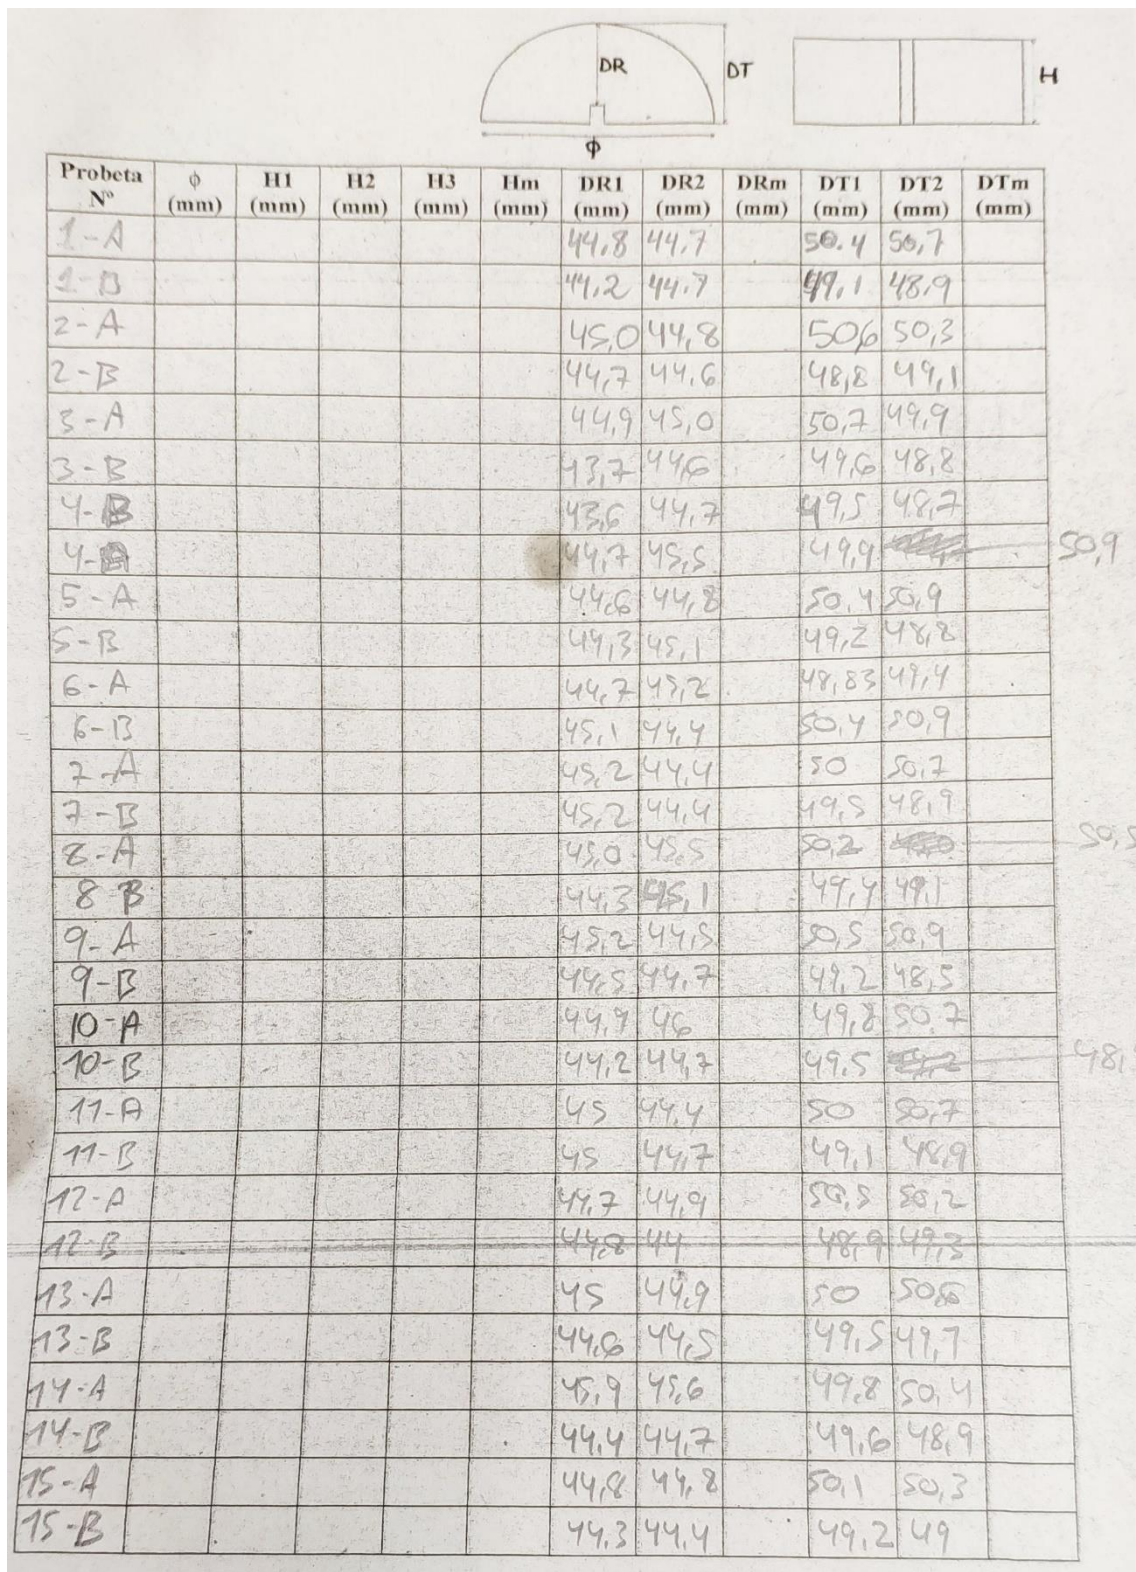 DR
DT
H
ϕ
Probeta Nº ϕ (mm) H1 (mm) H2 (mm) H3 (mm) Hm (mm) DR1 (mm) DR2 (mm) DRm (mm) DT1 (mm) DT2 (mm) DTm (mm)
1-A 44,8 44,7 50.4 50,7
1-B 44,2 44,7 49,1 48,9
2-A 45,0 44,8 50,6 50,3
2-B 44,7 44,6 48,8 49,1
3-A 44,9 45,0 50,7 49,9
3-B 43,7 44,6 49,6 48,8
4-B 43,6 44,7 49,5 48,7
4-A 44,7 45,5 49,9 50,9
5-A 44,6 44,8 50,4 50,9
5-B 44,3 45,1 49,2 48,8
6-A 44,7 45,2 48,83 49,4
6-B 45,1 44,4 50,4 50,9
7-A 45,2 44,4 50 50,7
7-B 45,2 44,4 49,5 48,9
8-A 45,0 45,5 50,2
8-B 44,3 45,1 49,4 49,1
9-A 45,2 44,5 50,5 50,9
9-B 44,5 44,7 49,2 48,5
10-A 44,9 46 49,8 50,7
10-B 44,2 44,7 49,5
11-A 45 44,4 50 50,7
11-B 45 44,7 49,1 48,9
12-A 44,7 44,9 50,5 50,2
12-B 44,8 44 48,9 49,3
13-A 45 44,9 50 50,6
13-B 44,6 44,5 49,5 49,7
14-A 45,9 45,6 49,8 50,4
14-B 44,4 44,7 49,6 48,9
15-A 44,8 44,8 50,1 50,3
15-B 44,3 44,4 49,2 49